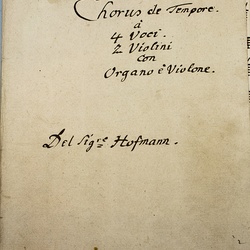 Chorus de Tempore.
à
4 Voci.
2 Violini
con
Organo è Violone.
Del Sig:re Hofmann.